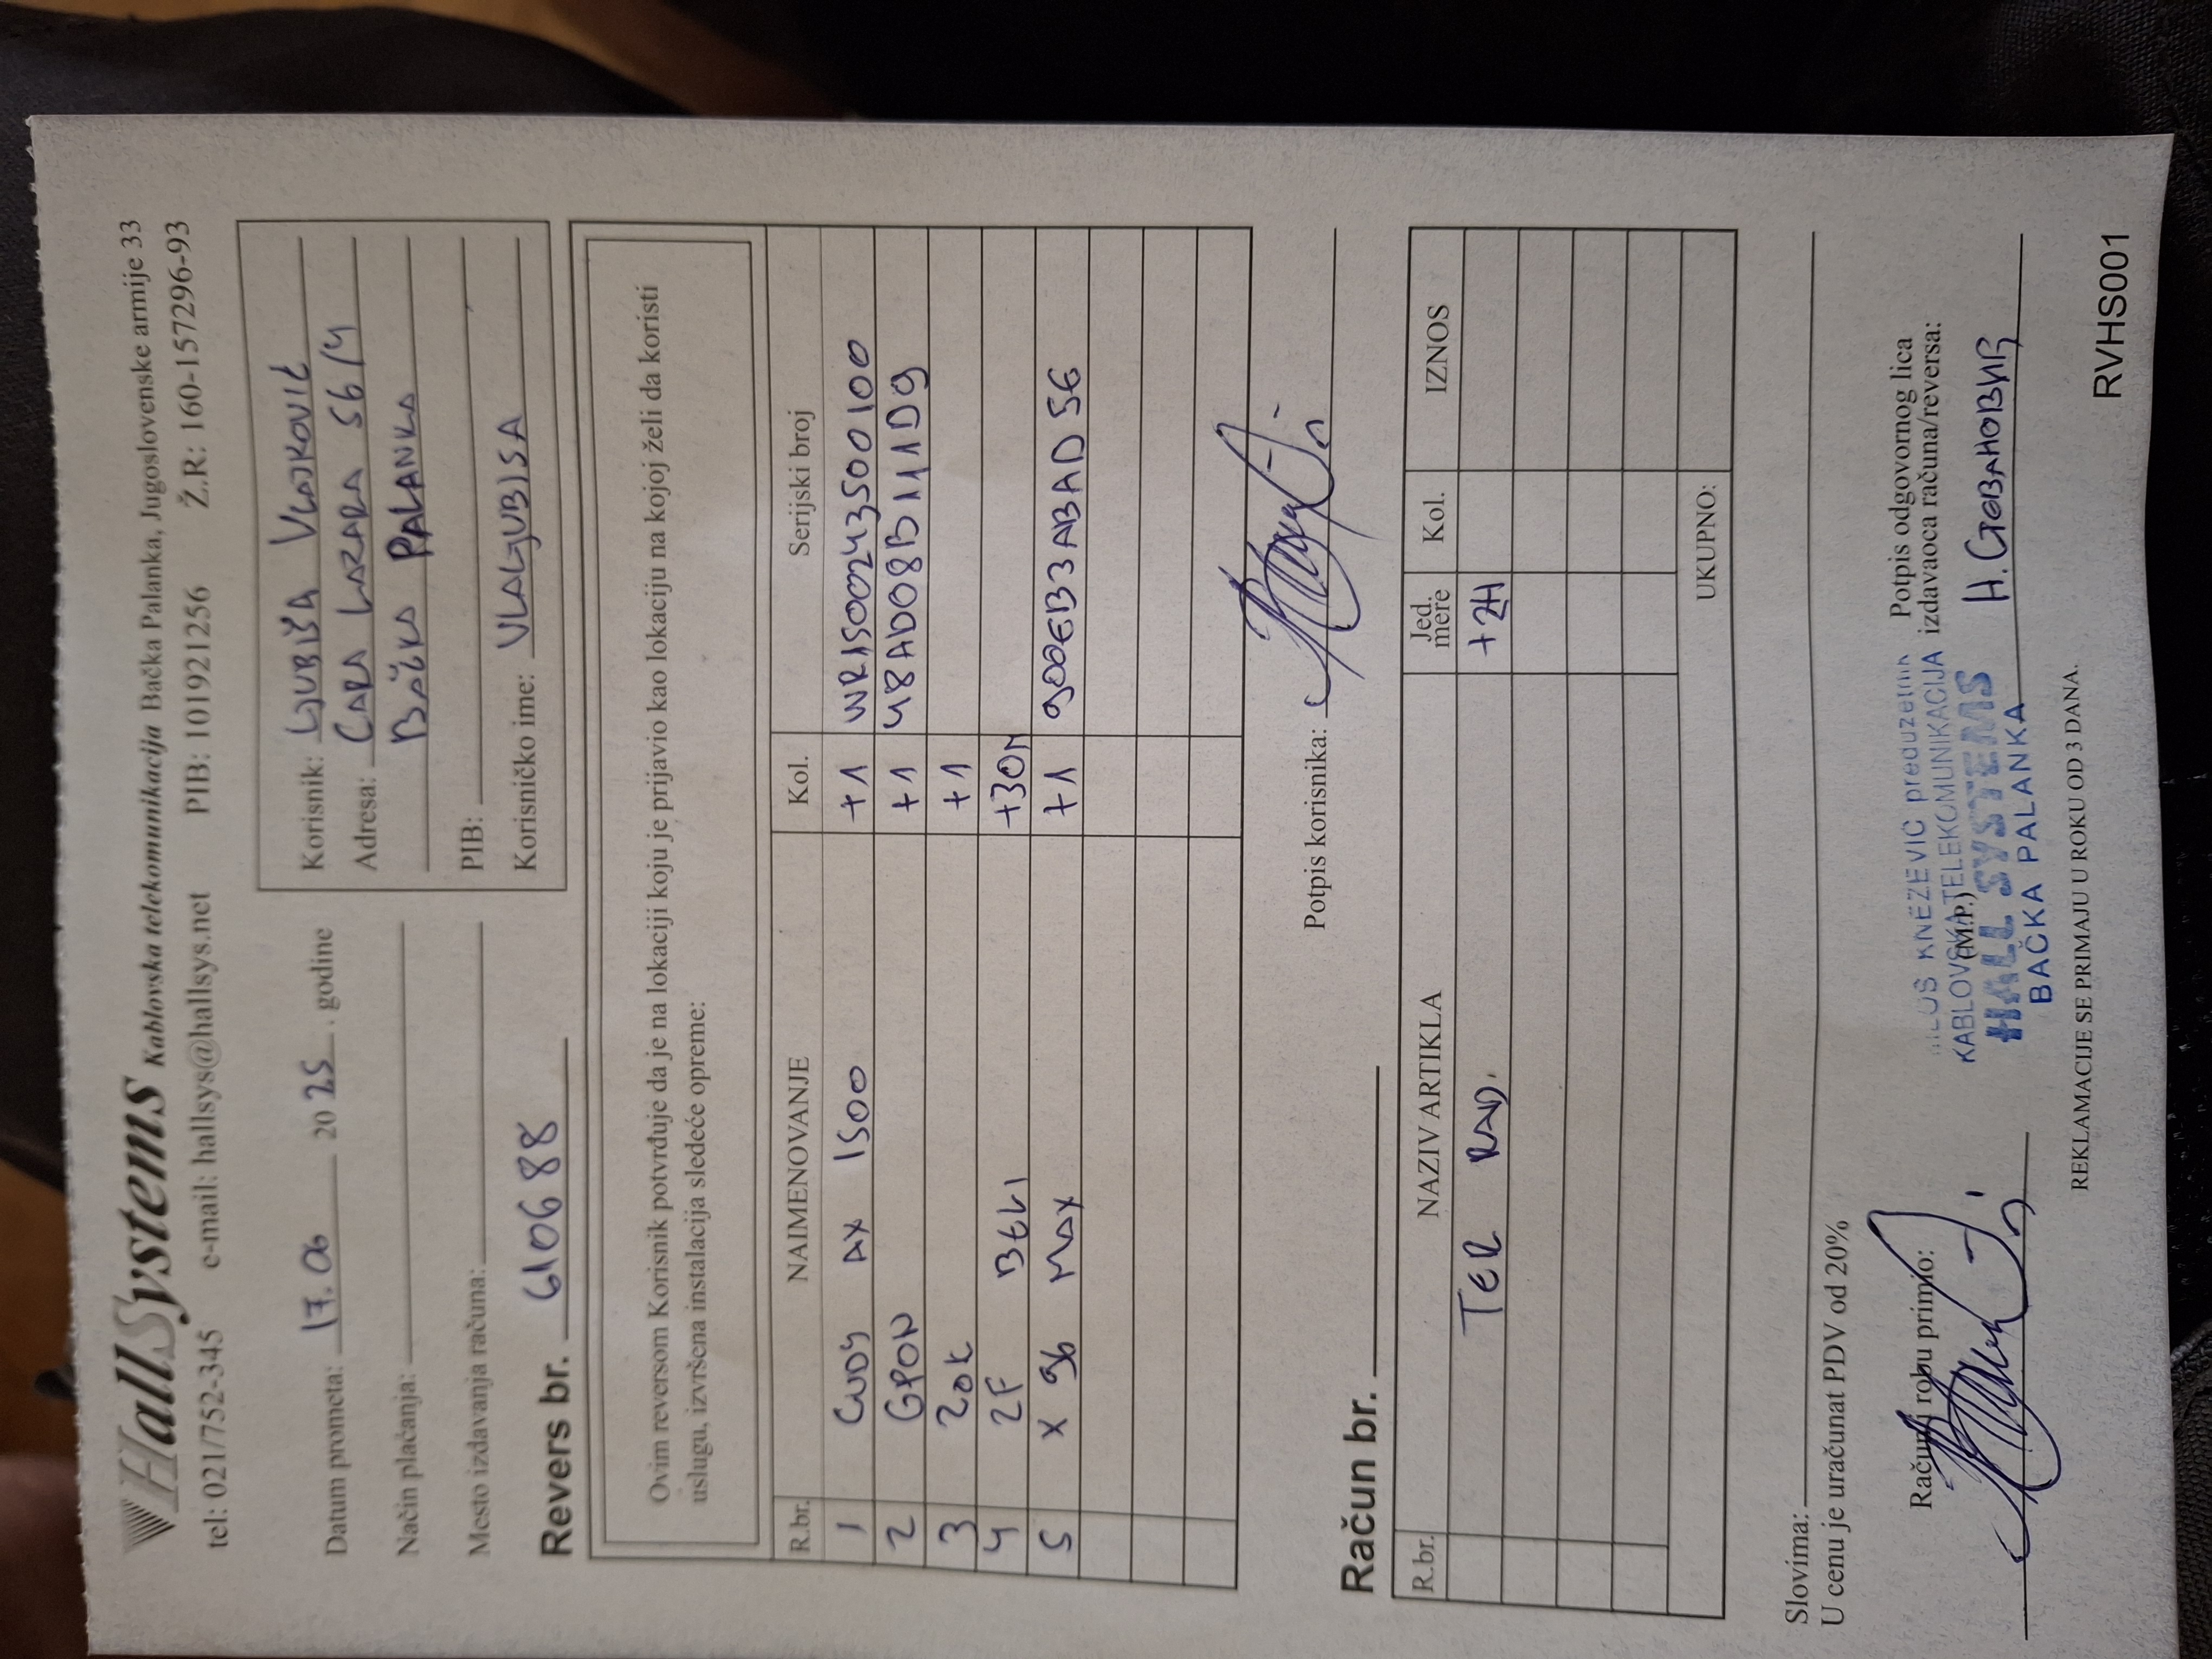 HallSystems Kablovska telekomunikacija Bačka Palanka, Jugoslovenske armije 33
tel: 021/752-345 e-mail: hallsys@hallsys.net PIB: 101921256 Ž.R: 160-157296-93
Datum prometa: 17.06 2025. godine
Način plaćanja:
Mesto izdavanja računa:
Korisnik: LJUBIŠA VLAJKOVIĆ
Adresa: CARA LAZARA 56/4
BAČKA PALANKA
PIB:
Korisničko ime: VLALJUBISA
Revers br. 610688
Ovim reversom Korisnik potvrđuje da je na lokaciji koju je prijavio kao lokaciju na kojoj želi da koristi
uslugu, izvršena instalacija sledeće opreme:
R.br. NAIMENOVANJE Kol. Serijski broj
1 CUDY AX 1500 +1 WR1500243500100
2 GPON +1 48AD08B111D9
3 ZOK +1
4 2F BELI +30M
5 X 96 MAX +1 900EB3ABAD5E
Potpis korisnika:
Račun br.
R.br. NAZIV ARTIKLA Jed. mere Kol. IZNOS
TER RAD. +2H
UKUPNO:
Slovima:
U cenu je uračunat PDV od 20%
Račun i robu primio:
KNEZEVIC preduzetnik
KABLOVSKA TELEKOMUNIKACIJA
(M.P.)
HALL SYSTEMS
BAČKA PALANKA
Potpis odgovornog lica
izdavaoca računa/reversa:
REKLAMACIJE SE PRIMAJU U ROKU OD 3 DANA.
RVHS001